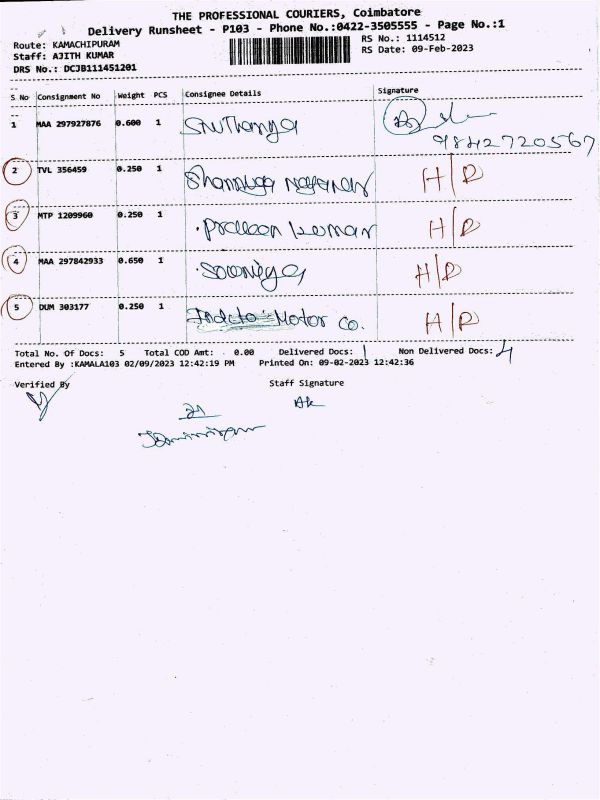 THE PROFESSIONAL COURIERS, Coimbatore
Delivery Runsheet - P103 - Phone No.:0422-3505555 - Page No.:1
Route: KAMACHIPURAM
RS No.: 1114512
Staff: AJITH KUMAR
RS Date: 09-Feb-2023
DRS No.: DCJB111451201
S No Consignment No Weight PCS Consignee Details Signature
1 MAA 297927876 0.600 1
9842720567
2 TVL 356459 0.250 1 H/D
3 MTP 1209960 0.250 1 H/D
4 MAA 297842933 0.650 1 H/D
5 DUM 303177 0.250 1 Motor Co. H/D
Total No. Of Docs: 5 Total COD Amt: 0.00 Delivered Docs: 1 Non Delivered Docs: 4
Entered By :KAMALA103 02/09/2023 12:42:19 PM Printed On: 09-02-2023 12:42:36
Verified By Staff Signature